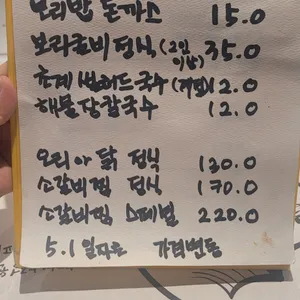 보리밥 돈까스 15.0
보리굴비 정식 (2인 이상) 35.0
초계 샐러드 국수 12.0
해물 장칼국수 12.0
오리 or 닭 정식 130.0
소갈비찜 정식 170.0
소갈비찜 스페셜 220.0
5.1 일자로 가격변동